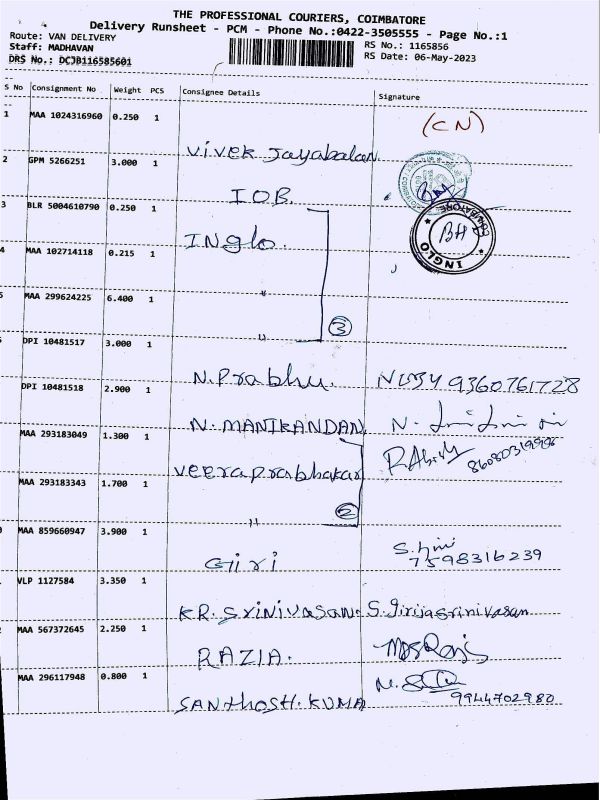 THE PROFESSIONAL COURIERS, COIMBATORE
Delivery Runsheet - PCM - Phone No.:0422-3505555 - Page No.:1
Route: VAN DELIVERY
RS No.: 1165856
Staff: MADHAVAN
RS Date: 06-May-2023
DRS No.: DCJB116585601
S No Consignment No Weight PCS Consignee Details Signature
1 MAA 1024316960 0.250 1 Vivek Jayabalan (CN)
2 GPM 5266251 3.000 1 IOB
3 BLR 5004610790 0.250 1 INglo. BH COIMBATORE INGLO
4 MAA 102714118 0.215 1 "
MAA 299624225 6.400 1 " 3
DPI 10481517 3.000 1 N.Prabhu. 9360761728
DPI 10481518 2.900 1 N. MANIKANDAN N.
MAA 293183049 1.300 1 Veeraprabhakar
MAA 293183343 1.700 1 " 2
MAA 859660947 3.900 1 Giri 7598316239
VLP 1127584 3.350 1 KR. Srinivasan S. Girijasrinivasan
MAA 567372645 2.250 1 RAZIA.
MAA 296117948 0.800 1 SANTHOSH.KUMA 9944702980